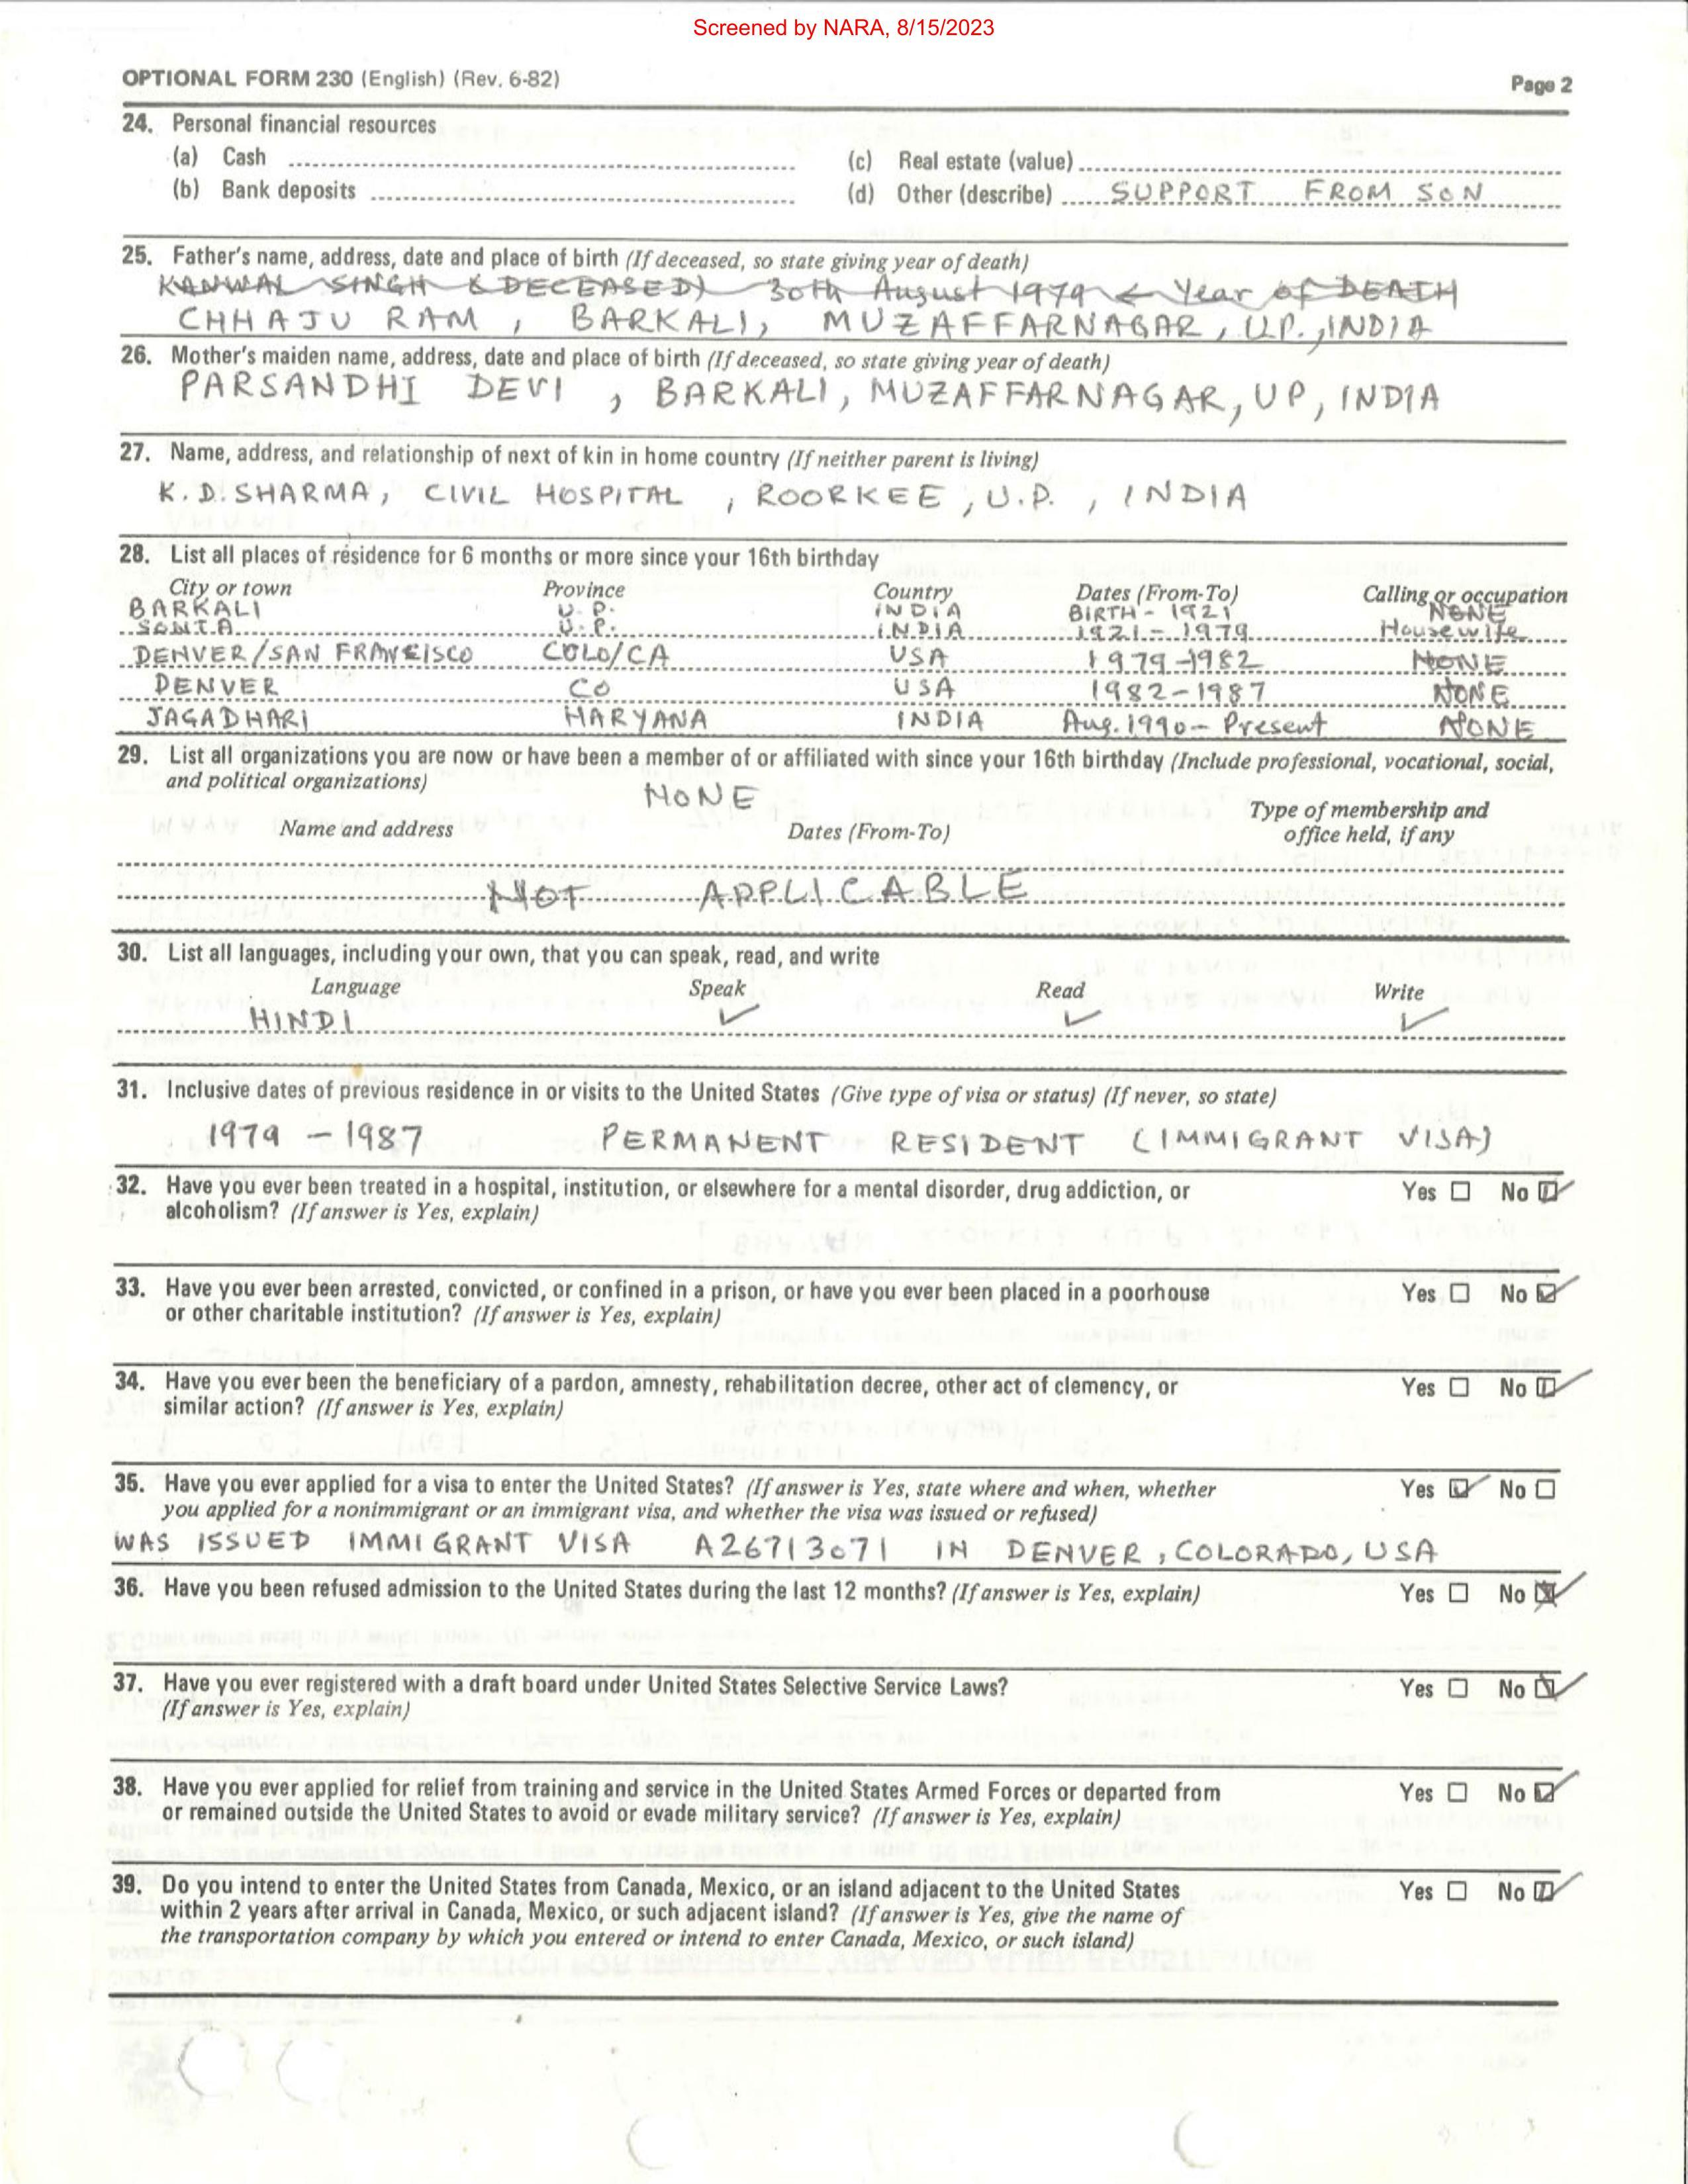 Screened by NARA, 8/15/2023
OPTIONAL FORM 230 (English) (Rev. 6-82) Page 2
24. Personal financial resources
(a) Cash (c) Real estate (value)
(b) Bank deposits (d) Other (describe) SUPPORT FROM SON
25. Father's name, address, date and place of birth (If deceased, so state giving year of death)
KANWAL SINGH (DECEASED) 30th August 1979 ← Year of DEATH
CHHAJU RAM, BARKALI, MUZAFFARNAGAR, U.P., INDIA
26. Mother's maiden name, address, date and place of birth (If deceased, so state giving year of death)
PARSANDHI DEVI, BARKALI, MUZAFFARNAGAR, UP, INDIA
27. Name, address, and relationship of next of kin in home country (If neither parent is living)
K.D. SHARMA, CIVIL HOSPITAL, ROORKEE, U.P., INDIA
28. List all places of residence for 6 months or more since your 16th birthday
City or town Province Country Dates (From-To) Calling or occupation
BARKALI U.P. INDIA BIRTH - 1921 NONE
SONTA U.P. INDIA 1921 - 1979 Housewife
DENVER/SAN FRANCISCO COLO/CA USA 1979-1982 NONE
DENVER CO USA 1982-1987 NONE
JAGADHARI HARYANA INDIA Aug. 1990 - Present NONE
29. List all organizations you are now or have been a member of or affiliated with since your 16th birthday (Include professional, vocational, social,
and political organizations) NONE
Name and address Dates (From-To) Type of membership and office held, if any
NOT APPLICABLE
30. List all languages, including your own, that you can speak, read, and write
Language Speak Read Write
HINDI ✓ ✓ ✓
31. Inclusive dates of previous residence in or visits to the United States (Give type of visa or status) (If never, so state)
1979 - 1987 PERMANENT RESIDENT (IMMIGRANT VISA)
32. Have you ever been treated in a hospital, institution, or elsewhere for a mental disorder, drug addiction, or Yes ☐ No ☑
alcoholism? (If answer is Yes, explain)
33. Have you ever been arrested, convicted, or confined in a prison, or have you ever been placed in a poorhouse Yes ☐ No ☑
or other charitable institution? (If answer is Yes, explain)
34. Have you ever been the beneficiary of a pardon, amnesty, rehabilitation decree, other act of clemency, or Yes ☐ No ☑
similar action? (If answer is Yes, explain)
35. Have you ever applied for a visa to enter the United States? (If answer is Yes, state where and when, whether Yes ☑ No ☐
you applied for a nonimmigrant or an immigrant visa, and whether the visa was issued or refused)
WAS ISSUED IMMIGRANT VISA A26713071 IN DENVER, COLORADO, USA
36. Have you been refused admission to the United States during the last 12 months? (If answer is Yes, explain) Yes ☐ No ☒
37. Have you ever registered with a draft board under United States Selective Service Laws? Yes ☐ No ☑
(If answer is Yes, explain)
38. Have you ever applied for relief from training and service in the United States Armed Forces or departed from Yes ☐ No ☑
or remained outside the United States to avoid or evade military service? (If answer is Yes, explain)
39. Do you intend to enter the United States from Canada, Mexico, or an island adjacent to the United States Yes ☐ No ☑
within 2 years after arrival in Canada, Mexico, or such adjacent island? (If answer is Yes, give the name of
the transportation company by which you entered or intend to enter Canada, Mexico, or such island)